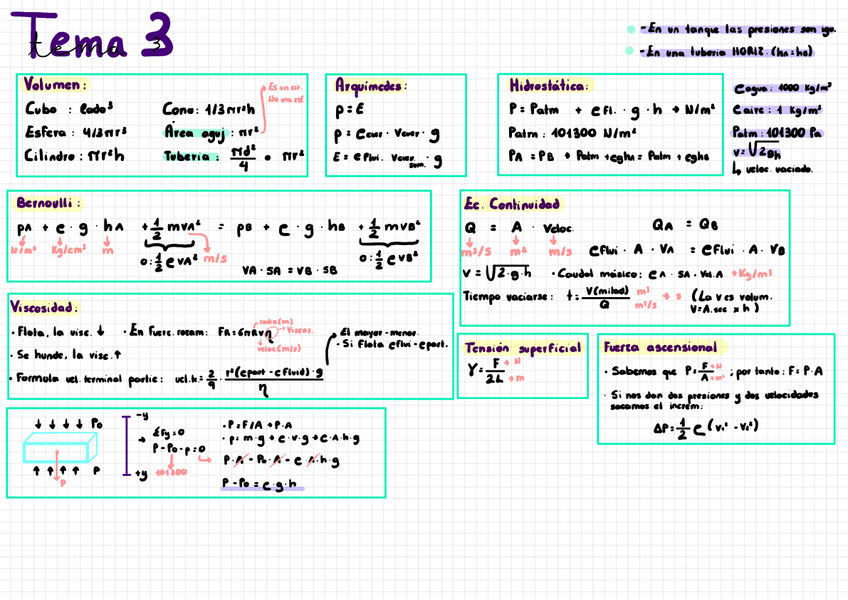 Tema 3
tema 3
- En un tanque las presiones son igu.
- En una tuberia HORIZ. (hA = hB)
Volumen:
Cubo : lado³
Cono: 1/3 πr²h
Es un cir.
No una esf
Esfera : 4/3πr³
Área aguj : πr²
Cilindro : πr²h
Tuberia : πd²/4 o πr²
Arquímedes:
p = E
p = ρcuer · Vcuer · g
E = ρflui. Vcuer sum. · g
Hidrostática:
P = Patm + ρfl. · g · h → N/m²
Patm : 101300 N/m²
PA = PB → Patm + ρghA = Patm + ρghB
ρagua: 1000 Kg/m³
ρaire: 1 Kg/m³
Patm: 101300 Pa
v = √2gh
↳ veloc. vaciado.
Bernoulli :
pA + ρ · g · hA + 1/2 mvA² = pB + ρ · g · hB + 1/2 mvB²
N/m² Kg/cm³ m m/s
o: 1/2 ρvA² o: 1/2 ρvB²
VA · SA = VB · SB
Ec. Continuidad
Q = A · Veloc. QA = QB
m³/s m² m/s ρflui · A · VA = ρflui · A · VB
V = √2·g·h · Caudal másico: ρA · SA · Vel.A → Kg/m³
Tiempo vaciarse: t = V(mitad)/Q m³ / m³/s → s (La V es volum. V = A.sec x h)
Viscosidad:
· Flota, la visc. ↓ · En fuerc. rozam: FR = 6πRvη
radio(m)
viscos.
veloc(m/s)
El mayor - menor.
· Si flota ρflui - ρpart.
· Se hunde, la visc. ↑
· Formula vel. terminal partic: vel.t = 2/9 · r²(ρpart - ρfluid) · g / η
Tensión superficial
γ = F/2L → N → m
Fuerza ascensional
· Sabemos que P = F/A → N → m² ; por tanto: F = P·A
· Si nos dan dos presiones y dos velocidades
sacamos el increm:
ΔP = 1/2 ρ (v₁² - v₂²)
↓ ↓ ↓ ↓ P₀
↑ ↑ ↑ ↑ P
p
-y
+y
→ ΣFy = 0
P - P₀ - p = 0
101300
· P = F/A → P·A
· p = m·g → ρ·v·g → ρ·A·h·g
P·A - P₀·A - ρ·A·h·g
P - P₀ = ρ·g·h